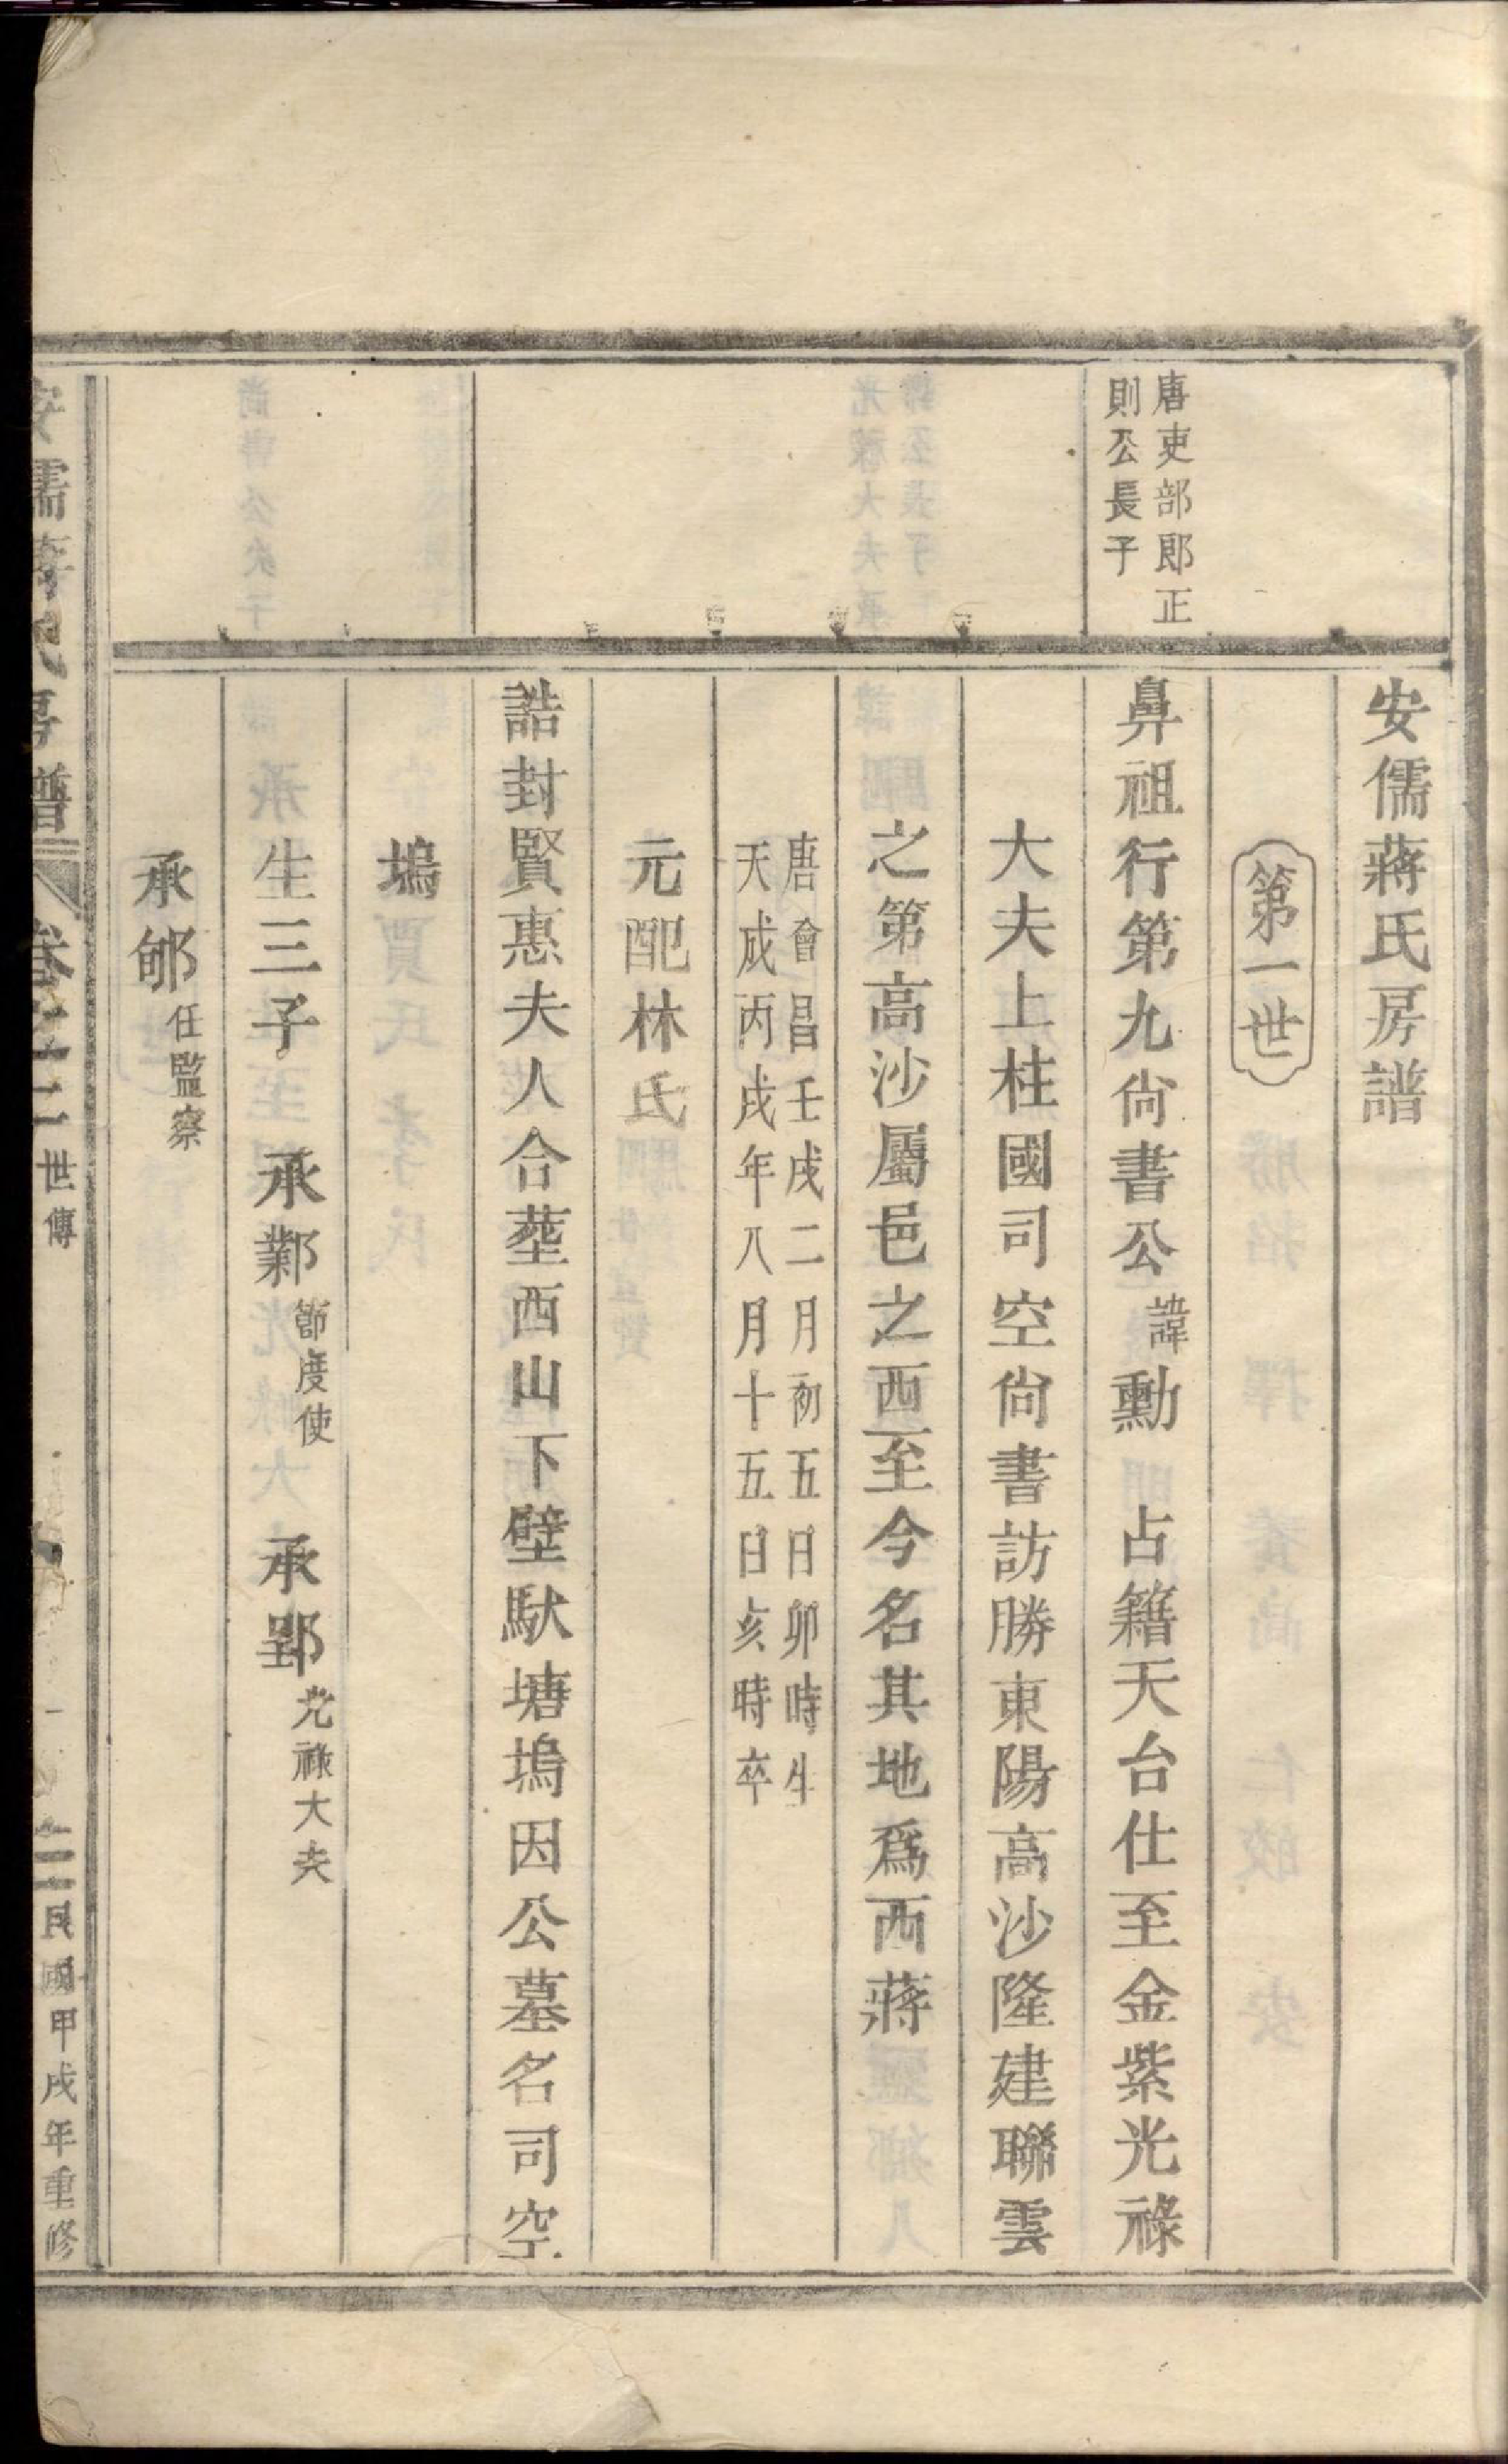 安儒蔣氏房譜
第一世
唐吏部郎正
則公長子
鼻祖行第九尙書公諱勳 占籍天台仕至金紫光祿
大夫上柱國司空尙書訪勝東陽高沙隆建聯雲
之第高沙屬邑之西至今名其地爲西蔣
唐會昌壬戌二月初五日卯時生
天成丙戌年八月十五日亥時卒
元配林氏
誥封賢惠夫人合塟西山下壁馱塘塢因公墓名司空
塢
生三子 承鄴節度使 承郢光祿大夫
承郇任監察
安儒蔣氏房譜 卷之二 世傳 二 民國甲戌年重修